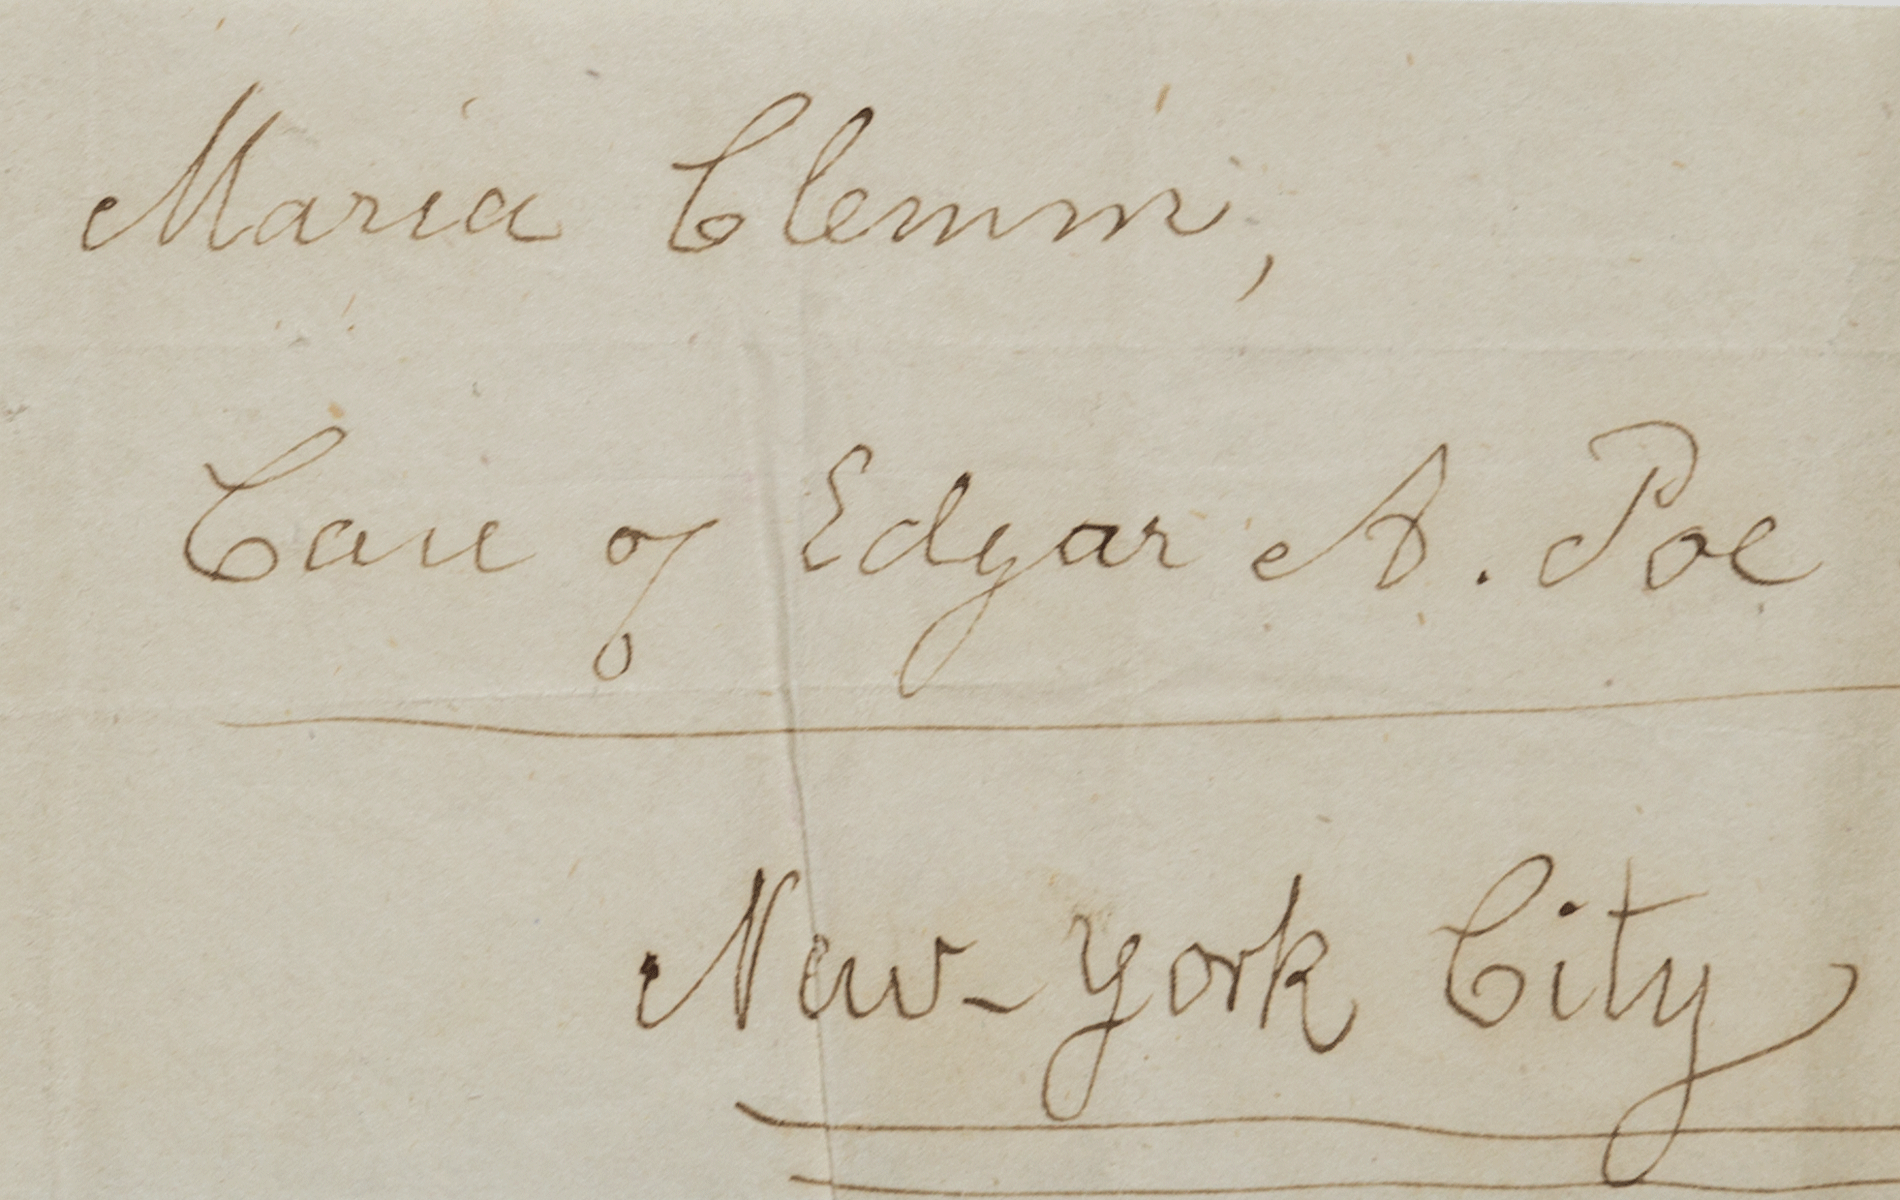 Maria Clemm,
Care of Edgar A. Poe
New-York City